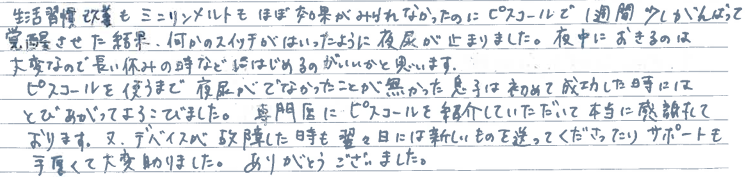 生活習慣改善も ミニリンメルトも ほぼ効果がみられなかったのに ピスコールで 1週間 少しがんばって
覚醒させた結果、何かのスイッチがはいったように 夜尿が止まりました。夜中に おきるのは
大変なので長い休みの時などにはじめるのがいいかと思います。
ピスコールを使うまで 夜尿がでなかったことが無かった息子は初めて成功した時には
とびあがってよろこびました。 専門医に ピスコールを紹介していただいて 本当に感謝して
おります。又、デバイスが 故障した時も 翌々日には新しいものを送ってくださったり サポートも
手厚くて大変助りました。 ありがとうございました。